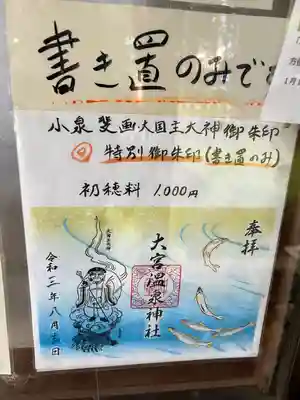 書き置のみです
小泉斐画大国主大神御朱印
特別御朱印(書き置のみ)
初穂料 1,000円
奉拝
大宮温泉神社
令和三年八月吉日